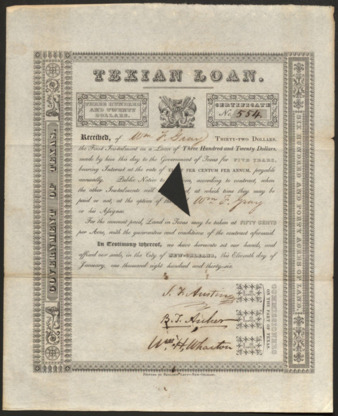 TEXIAN LOAN.
THREE HUNDRED
AND TWENTY
DOLLARS.
CERTIFICATE
No. 554.
Received, of Wm F. Gray THIRTY-TWO DOLLARS,
the First Instalment on a Loan of Three Hundred and Twenty Dollars,
made by him this day to the Government of Texas for FIVE YEARS,
bearing Interest at the rate of PER CENTUM PER ANNUM, payable
annually. Notice according to contract, when
the other Instalments will at which time they may be
paid or not, at the option of Wm F. Gray
or his Assigns.
For the amount paid, Land in Texas may be taken at FIFTY CENTS
per Acre, with the guarantees and conditions of the contract aforesaid.
In Testimony whereof, we have hereunto set our hands, and
affixed our seals, in the City of NEW-ORLEANS, this Eleventh day of
January, one thousand eight hundred and thirty-six.
S. F. Austin
B. T. Archer
Wm H. Wharton
COMMISSIONERS
ON THE PART OF TEXAS.
GOVERNMENT OF TEXAS.
SIX HUNDRED AND FORTY ACRES OF LAND.